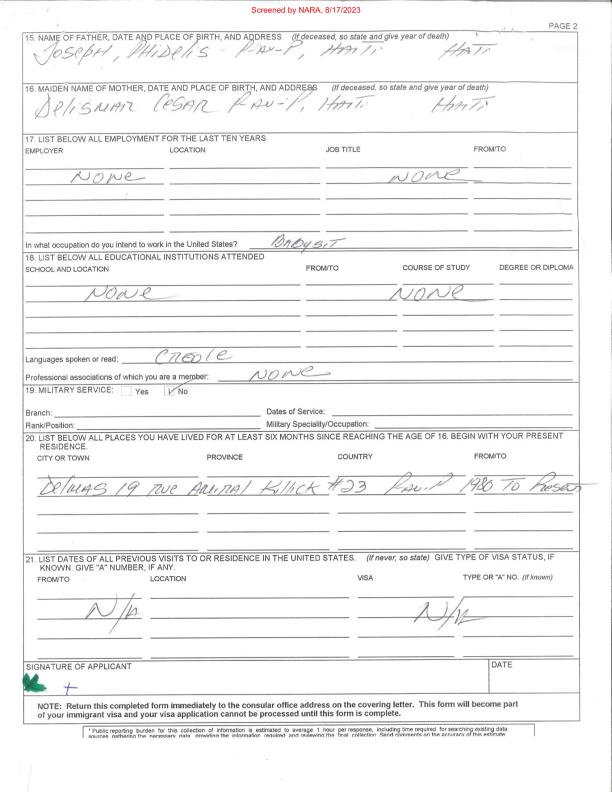 Screened by NARA, 8/17/2023
PAGE 2
15. NAME OF FATHER, DATE AND PLACE OF BIRTH, AND ADDRESS (If deceased, so state and give year of death)
Joseph, PHidelis P-au-P, Haiti Haiti
16. MAIDEN NAME OF MOTHER, DATE AND PLACE OF BIRTH, AND ADDRESS (If deceased, so state and give year of death)
Delismar Cesar P-au-P, Haiti Haiti
17. LIST BELOW ALL EMPLOYMENT FOR THE LAST TEN YEARS
EMPLOYER LOCATION JOB TITLE FROM/TO
None None
In what occupation do you intend to work in the United States? Babysit
18. LIST BELOW ALL EDUCATIONAL INSTITUTIONS ATTENDED
SCHOOL AND LOCATION FROM/TO COURSE OF STUDY DEGREE OR DIPLOMA
None None
Languages spoken or read: Creole
Professional associations of which you are a member: None
19. MILITARY SERVICE: Yes ✓ No
Branch: Dates of Service:
Rank/Position: Military Speciality/Occupation:
20. LIST BELOW ALL PLACES YOU HAVE LIVED FOR AT LEAST SIX MONTHS SINCE REACHING THE AGE OF 16. BEGIN WITH YOUR PRESENT
RESIDENCE.
CITY OR TOWN PROVINCE COUNTRY FROM/TO
Delmas 19 rue Amiral Killick #23 P-au-P 1980 To Present
21. LIST DATES OF ALL PREVIOUS VISITS TO OR RESIDENCE IN THE UNITED STATES. (If never, so state) GIVE TYPE OF VISA STATUS, IF
KNOWN. GIVE "A" NUMBER, IF ANY.
FROM/TO LOCATION VISA TYPE OR "A" NO. (If known)
N/A N/A
SIGNATURE OF APPLICANT DATE
+
NOTE: Return this completed form immediately to the consular office address on the covering letter. This form will become part
of your immigrant visa and your visa application cannot be processed until this form is complete.
* Public reporting burden for this collection of information is estimated to average 1 hour per response, including time required for searching existing data
sources, gathering the necessary data, providing the information required, and reviewing the final collection. Send comments on the accuracy of this estimate